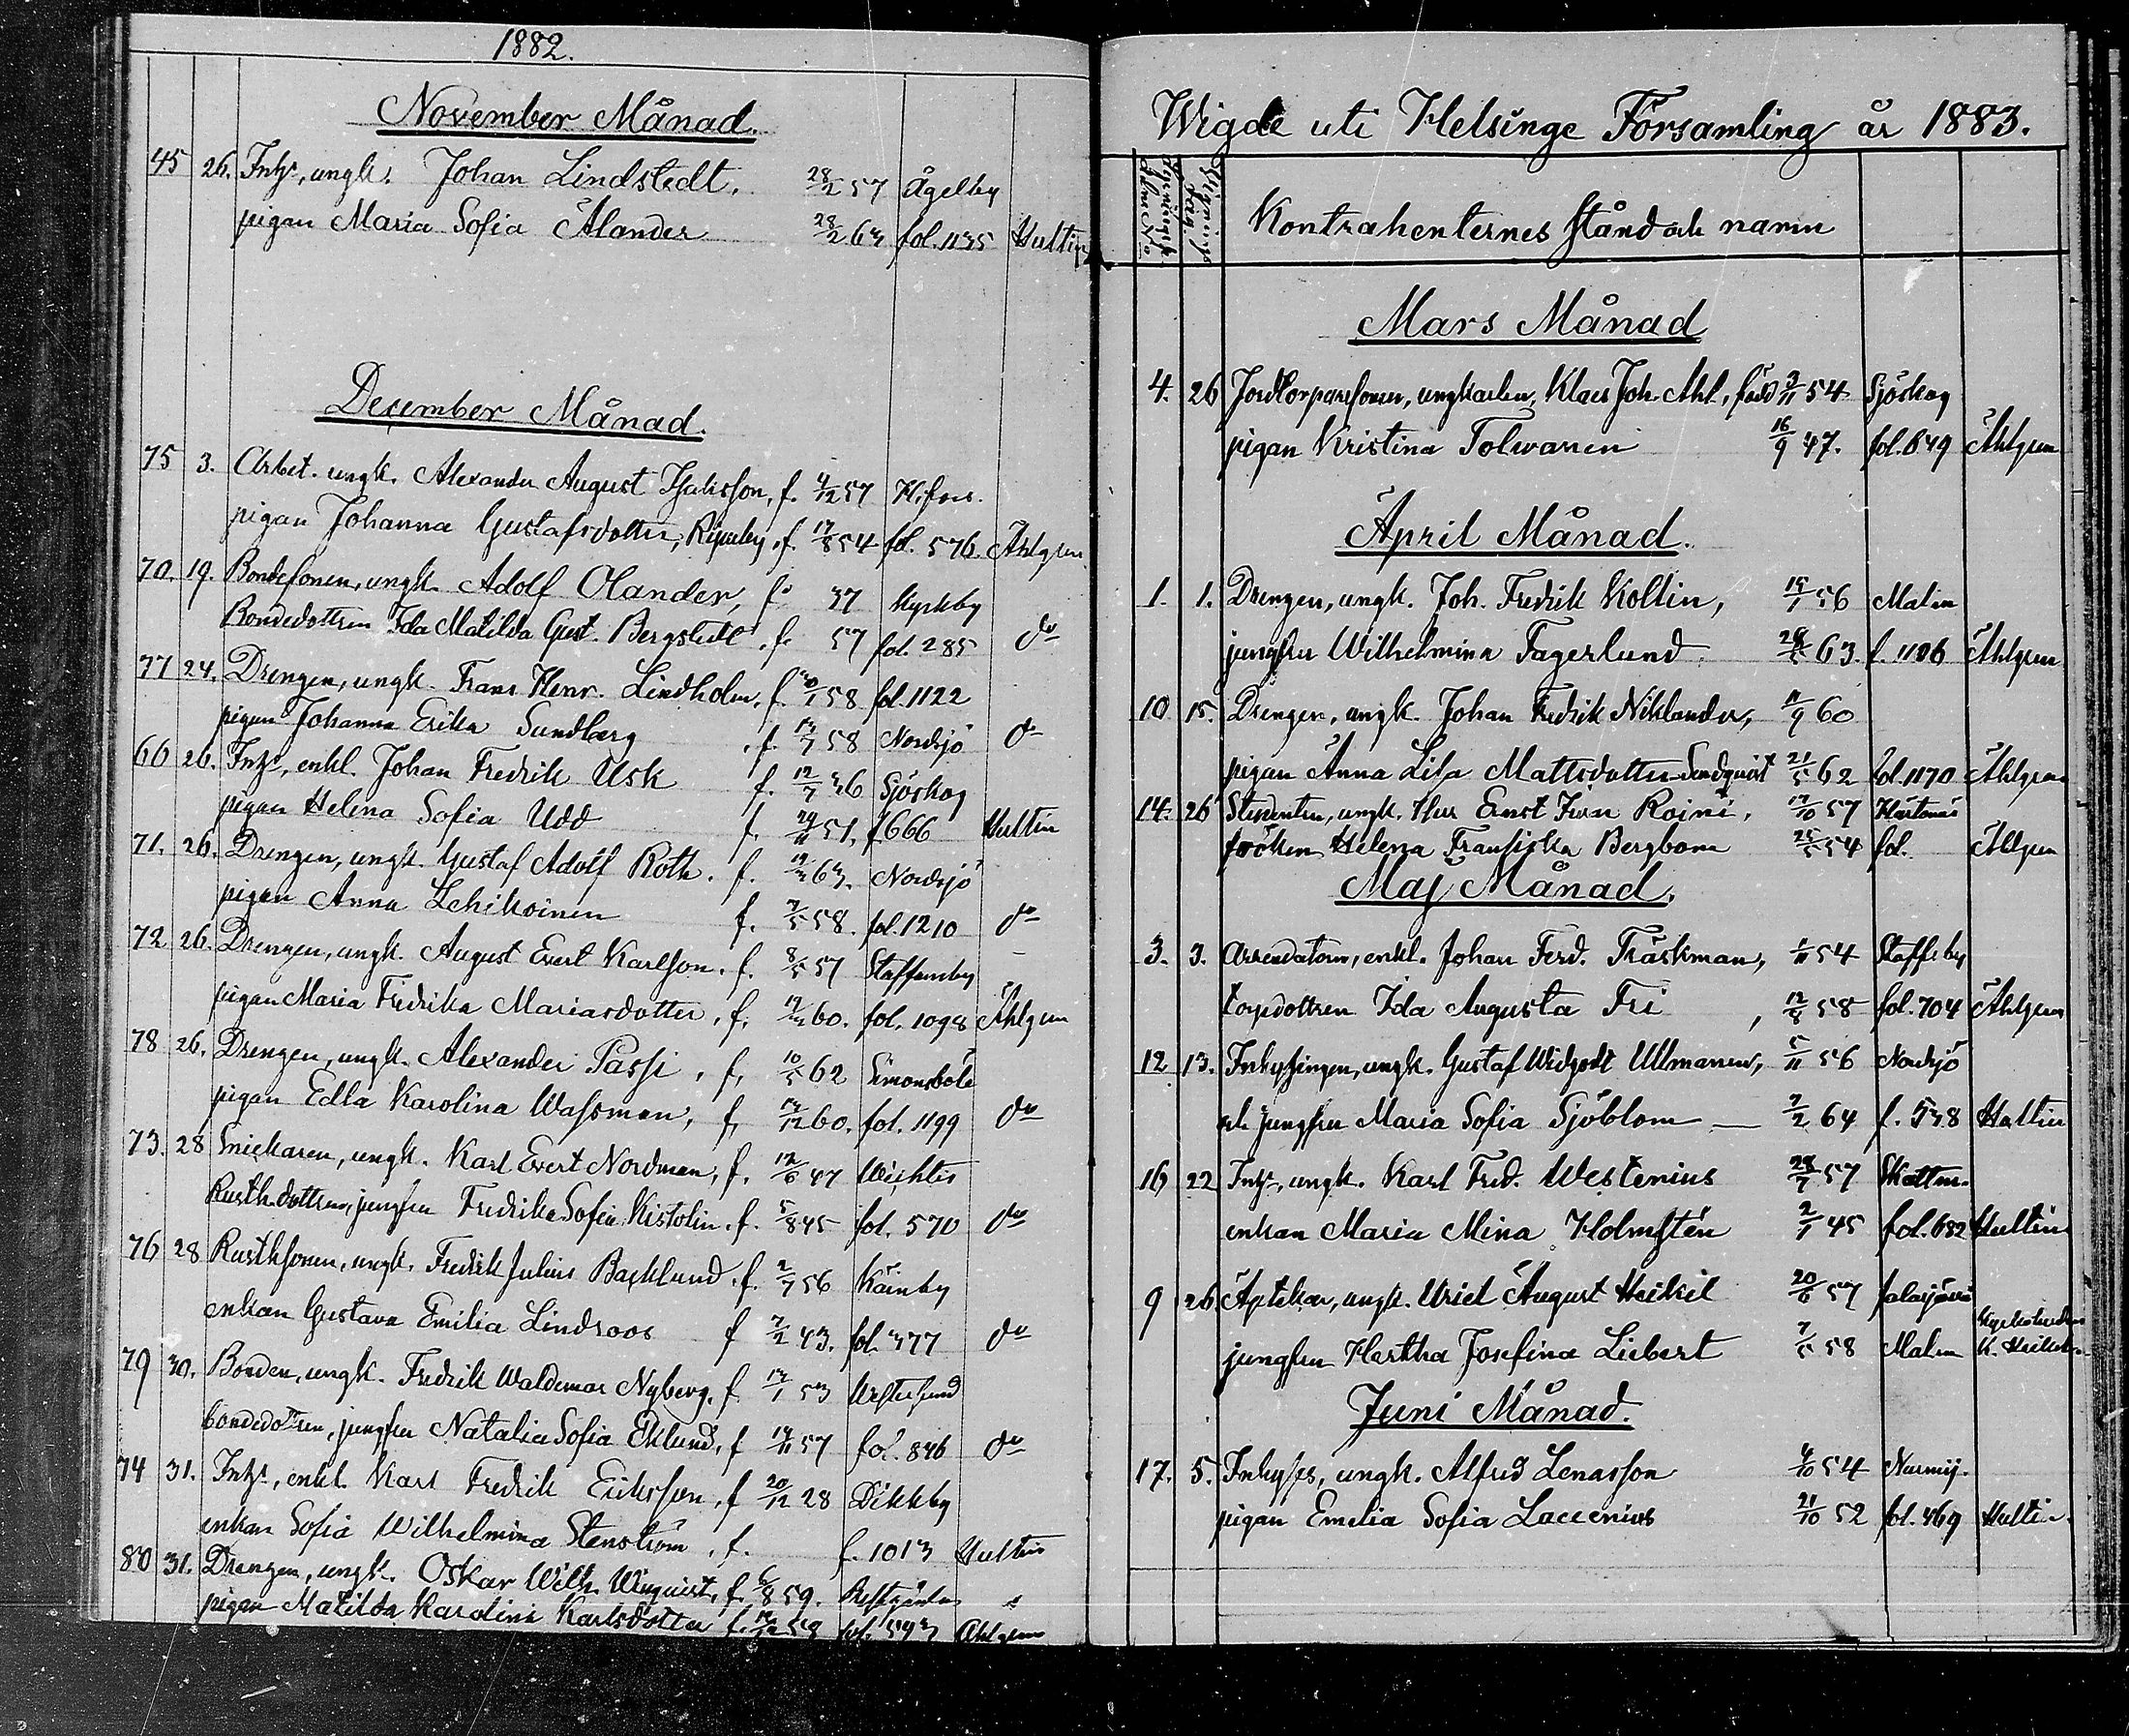 1882.
November Månad.
45 26. Inhs, ungk. Johan Lindstedt. 28/2 57 Ågelby
pigan Maria Sofia Ålander 28/2 63 fol. 1135 Hultin
December Månad.
75 3. Arbet. ungk. Alexander August Isaksson, f. 4/12 57 H:fors.
pigan Johanna Gustafsdotter, f. 17/8 54 fol. 576. Åhlgren
70. 19. Bondesonen, ungk. Adolf Olander, f. 37 Kyrkby
Bondedottren Ida Matilda Gust. Bergstedt, f. 57 fol. 285 do
77 24. Drengen, ungk. Frans Henr. Lindholm, f. 58 fol. 1122
pigan Johanna Erika Sundberg, f. 58 Nordsjö do
66 26. Inhs, enkl. Johan Fredrik Usk f. 12/7 36 Sjöskog
pigan Helena Sofia Udd f. 29/11 51. f 666 Hultin
71. 26. Drengen, ungk. Gustaf Adolf Roth. f. 63. Nordsjö
pigan Anna Lehikoinen f. 7/5 58. fol. 1210 do
72 26. Drengen, ungk. August Evert Karlsson, f. 8/5 57 Staffansby
pigan Maria Fredrika Mariasdotter, f. 60. fol. 1098 Åhlgren
78 26. Drengen, ungk. Alexander Passi, f, 10/5 62 Simonsböle
pigan Edla Karolina Wassman, f, 60. fol. 1199 do
73. 28 Snickaren, ungk. Karl Evert Nordman, f. 12/6 47 Wichtis
Rusth.dottren, jungfru Fredrika Sofia Kistolin, f. 5/8 45 fol. 570 do
76 28 Rusthsonen, ungk. Fredrik Julius Backlund, f. 2/7 56 Käinby
enkan Gustava Emilia Lindroos f 7/2 43. fol. 377 do
79 30. Bonden, ungk. Fredrik Waldemar Nyberg, f. 53 Westersund
bondedottren, jungfru Natalia Sofia Eklund, f 57 fol. 846 do
74 31. Inhs, enkl. Karl Fredrik Eriksson, f 20/12 28 Dikkby
enkan Sofia Wilhelmina Stenström, f. f. 1013 Hultin
80 31. Drengen, ungk. Oskar Wilh. Winquist, f. 6/8 59.
pigan Matilda Karolina Karlsdotter f. 58 fol. 593 Åhlgren
Wigde uti Helsinge Församling år 1883.
Kontrahenternes stånd och namn
Mars Månad
4. 26 Jordtorparesonen, ungkarlen, Klaes Joh. Ahl, född 54 Sjöskog
pigan Kristina Tolwanen 16/9 47. fol. 649 Åhlgren
April Månad.
1. 1. Drengen, ungk. Joh. Fredrik Koltin, 56 Malm
jungfru Wilhelmina Fagerlund. 63. f. 1186 Åhlgren
10 15. Drengen, ungk. Johan Fredrik Niklander, 11/9 60
pigan Anna Lisa Mattsdotter Sundquist 21/5 62 fol. 1170 Åhlgren
14. 26 Studenten, ungk. Herr Ernst Roini, 17/10 57
fröken Helena Fransiska Bergbom 25/5 54 fol. Åhlgren
Maj Månad.
3. 3. Arrendatorn, enkl. Johan Ferd. Träskman, 54 Staffsby
torpdottren Ida Augusta Fri, 12/8 58 fol. 704 Åhlgren
12 13. Inhysingen, ungk. Gustaf Widgodt Ullmanen, 5/11 56 Nordsjö
och jungfru Maria Sofia Sjöblom 7/2 64 f. 538 Hultin
16 22 Inhs, ungk. Karl Fred. Westenius 28/7 57 Skattm.
enkan Maria Mina Holmstén 2/1 45 fol. 682 Hultin
9 26 Aptekar, ungk. Uriel August Heikel 20/6 57 Jalasjärvi
jungfru Hertha Josefina Liebert 58 Malm K. Heikel
Juni Månad.
17. 5. Inhyses, ungk. Alfred Lenasson 4/10 54 Nurmij.
pigan Emelia Sofia Laccenius 21/10 52 fol. 469 Hultin.